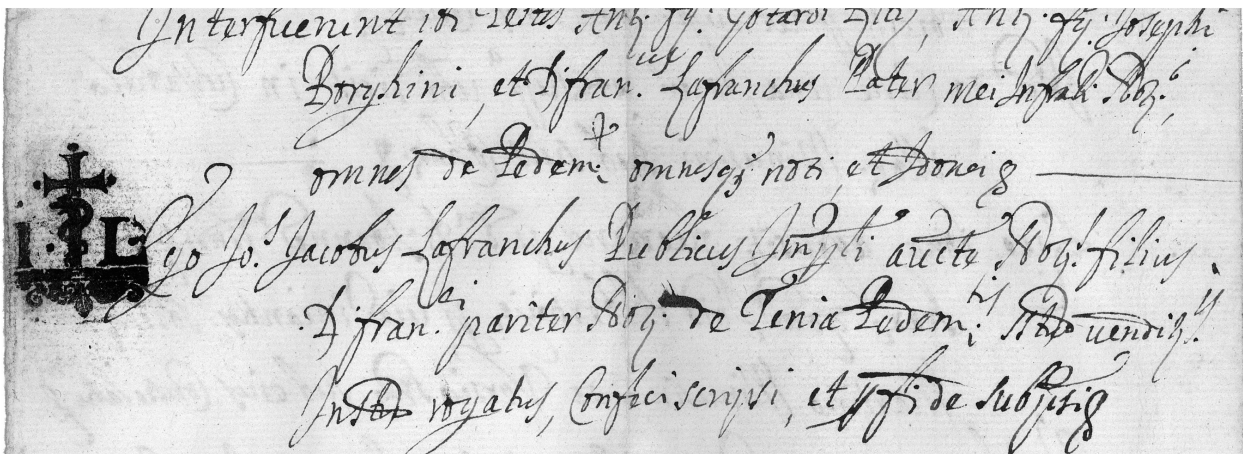 Interfuerunt ibi Testes Antᵢ. fq. Gotardi Antᵢ. fq. Josephi
Borghini, et D fran.cus Lafranchus Pater mei Infrali. Noz.
omnes de Pedem.te omnesq; noti, et Idonei
I. L.
Ego Jo.s Jacobus Lafranchus Publicus Imp.li aucte Noz.s filius
D fran.ci pariter Noz. de Tenia Pedem.tis vendiz.
rogatus, Confeci scripsi, et p fide subscripsi